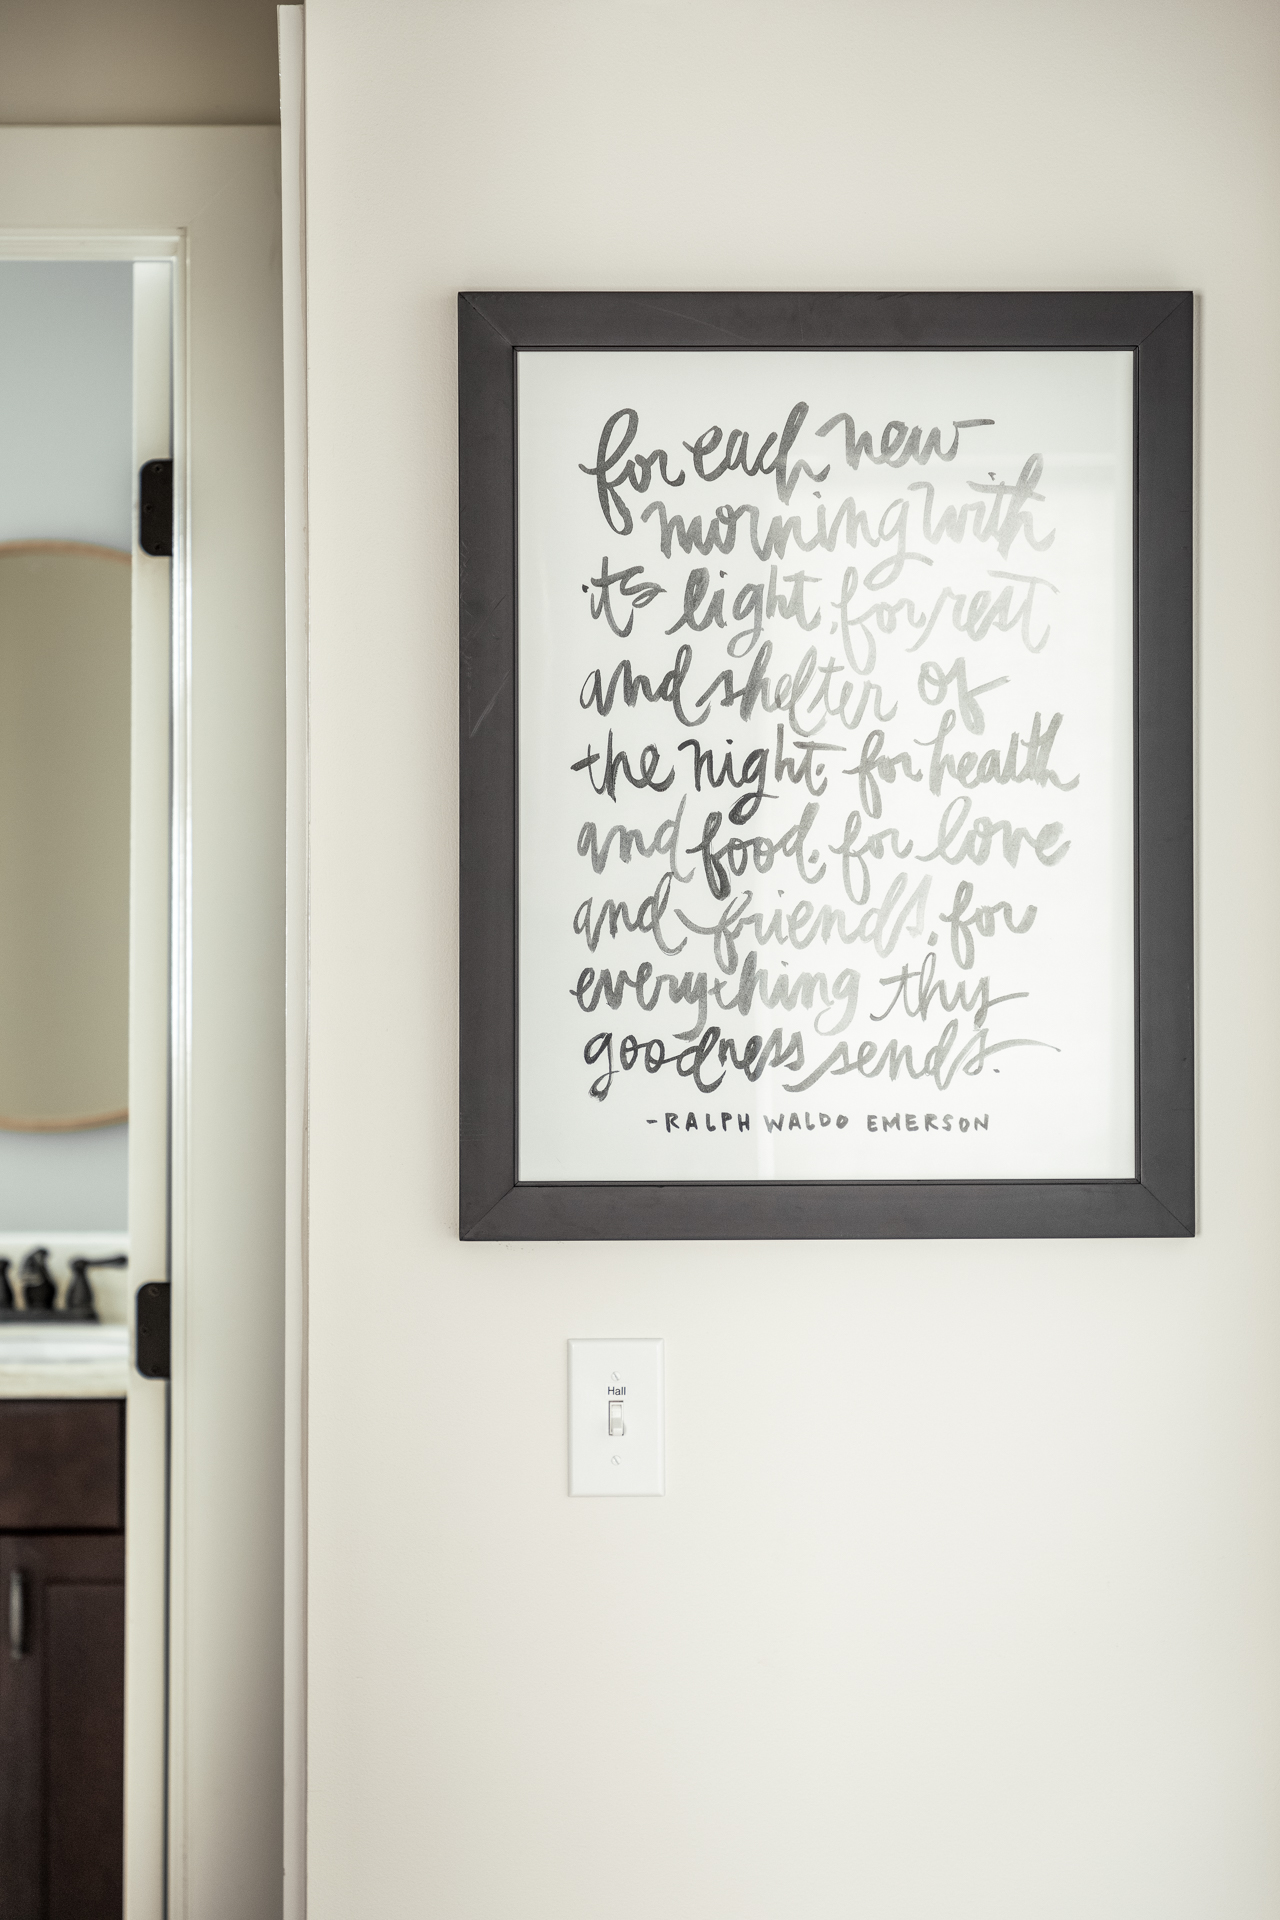 for each new
morning with
it's light, for rest
and shelter of
the night, for health
and food, for love
and friends, for
everything thy
goodness sends.
-RALPH WALDO EMERSON
Hall